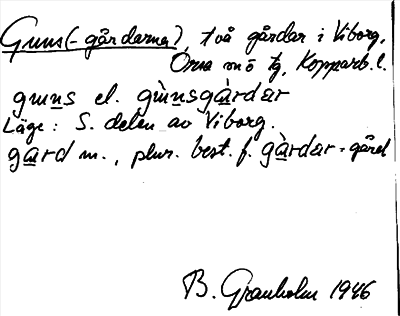 Guns(-gårdarna), två gårdar i Viborg,
Orsa m̄o tg, Kopparb. l.
guns el. gùnsgàrdar
Läge: S. delen av Viborg.
gard m., plur. best. f. gàrdar = gård
B. Granholm 1946